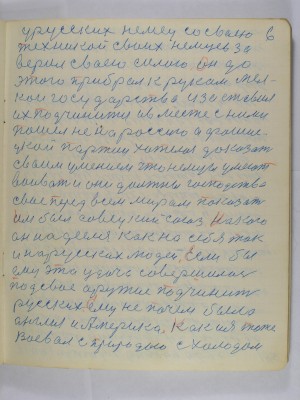 у русских немец со своею 6
техникой своих немцев за
верил своею силою. он до
этого прибрал к рукам мел
кой государства и заставил
их подчинити и вместе с ними
пошел не на россию а
ской партии хотел доказат
своим умением что немцы умеют
воеват и они должны господство
свое перед всем мирам показат
им был совецкий союз. На кого
он наделя как на себя так
и на русских людей. Если бы
ему это удачь совершилас
под свае аружие подчинит
русских ему не почем было
англия и Америка. Как и я тоже
Воевал с природою с холодом